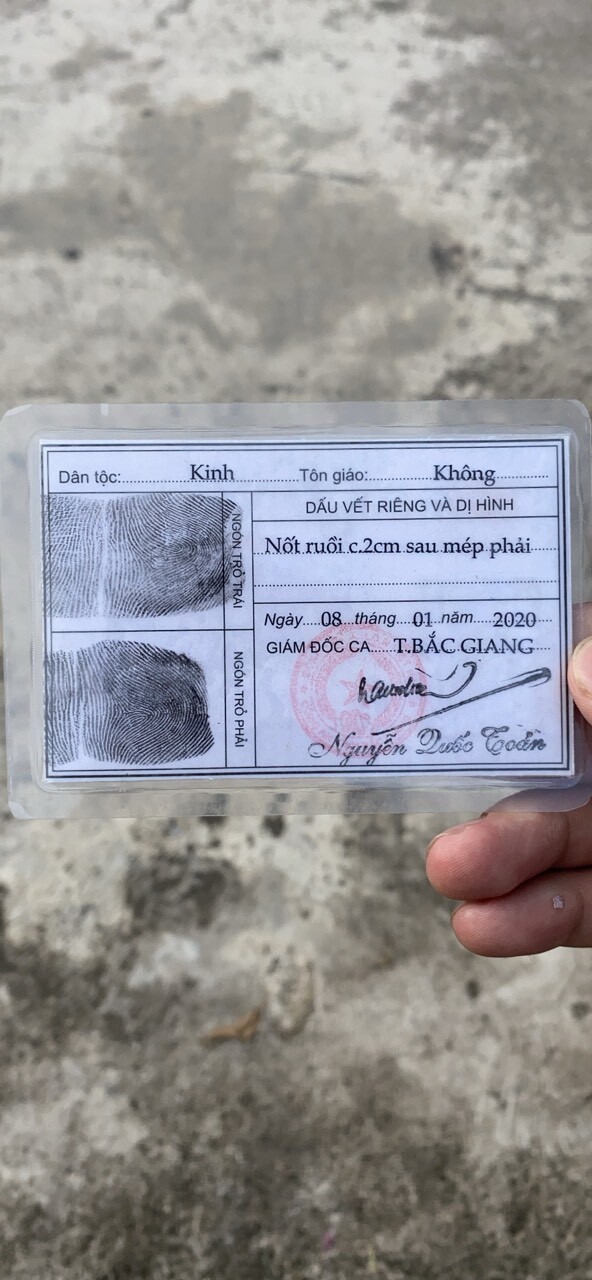 Dân tộc: Kinh Tôn giáo: Không
NGÓN TRỎ TRÁI
NGÓN TRỎ PHẢI
DẤU VẾT RIÊNG VÀ DỊ HÌNH
Nốt ruồi c.2cm sau mép phải
Ngày 08 tháng 01 năm 2020
GIÁM ĐỐC CA T.BẮC GIANG
Nguyễn Quốc Toản